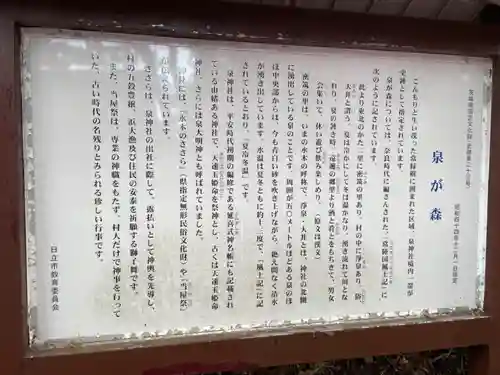 茨城県指定文化財 史跡第二十三号
泉が森
昭和四十四年十二月一日指定
こんもりと生い茂った常緑樹に囲まれた区域、泉神社境内一帯が
史跡として指定されています。
泉が森については、奈良時代に編さんされた、「常陸国風土記」に
次のように記されています。
此より東北のかた二里に密筑の里あり、村の中に浄泉あり、俗、
大井と謂う、夏は冷かにして冬は温かなり、湧き流れて川とな
れり、夏の暑き時、遠邇の郷里より酒と肴とをもちきて、男女
会集いて、休い遊び飲み楽しめり、(原文は漢文)
密筑の里は、いまの水木の呼称で、浄泉・大井とは、神社の北側
に湧出している泉のことです。周囲が五〇メートルほどある泉のほ
ぼ中央部からは、今も青白い砂を吹き上げながら、絶え間なく清水
が湧き出しています。水温は夏冬ともに約十三度で、「風土記」に記
されているとおり、「夏冷冬温」です。
泉神社は、平安時代初期の編修である延喜式神名帳にも記載され
ている由緒ある神社で、天速玉姫命を祭神とし、古くは天速玉姫命
神社、さらには泉大明神とも呼ばれていました。
神社には、「水木のささら」(県指定無形民俗文化財)や「当屋祭」
が伝えられています。
ささらは、泉神社の出社に際して、露払いとして神輿を先導し、
村の五穀豊穣、浜大漁及び住民の安泰を祈願する獅子舞です。
また、当屋祭は、専業の神職をもたず、村人だけで神事を行って
いた、古い時代の名残りとみられる珍しい行事です。
日立市教育委員会